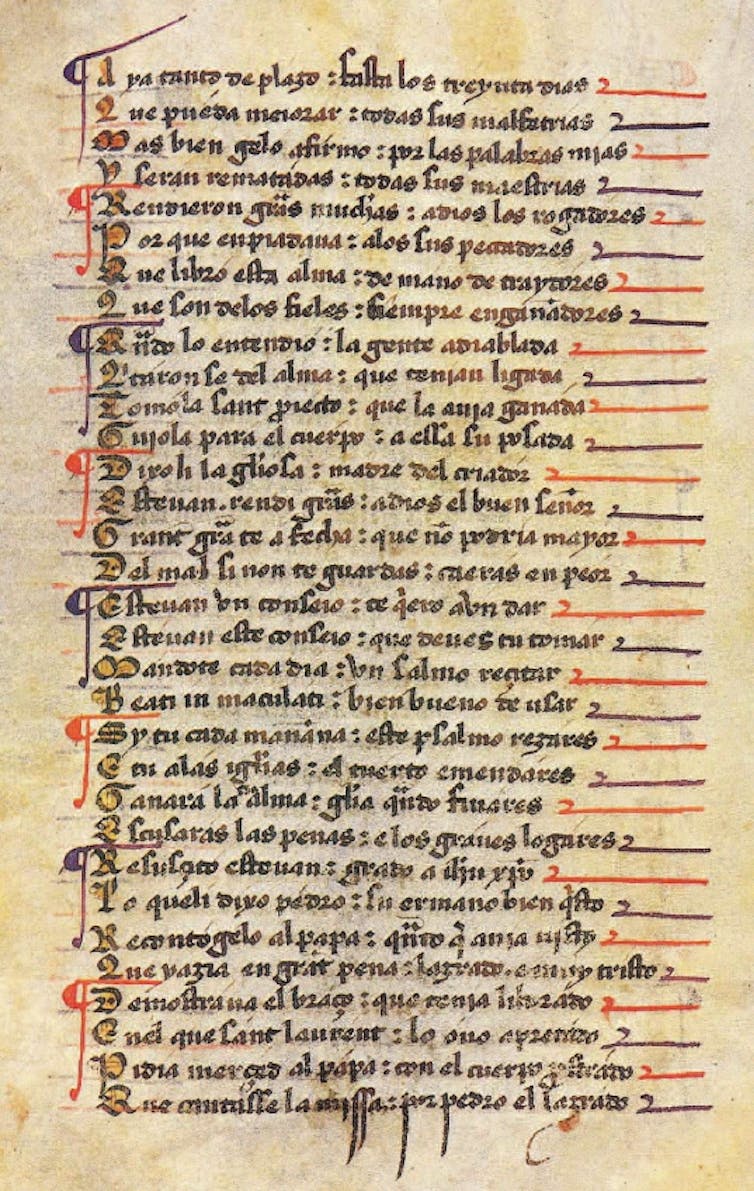 A ya tanto de plazo : fasta los treynta dias
Que pueda meiorar : todas sus malfetrias
Mas bien gelo afirmo : por las palabras mias
Y seran rematadas : todas sus maestrias
Rendieron gr̃as muchas : adios los rogadores
Por que enpiadaua : alos sus pecadores
Que libro esta alma : de mano de traytores
Que son delos fieles : siempre engañadores
Qñdo lo entendio : la gente adiablada
Quitaron se del alma : que tenian ligada
Tomola sant proiecto : que la auja ganada
Guiola para el cuerpo : a essa su posada
Dixoli la gl̃iosa : madre del criador
Esteuan . rendi gr̃as : adios el buen señor
Grant gr̃a te a fecha : que nõ podria mayor
Del mal si non te guardas : caeras en peor
Esteuan vn conseio : te q̃ero avn dar
Esteuan este conseio : que deues tu tomar
Mandote cada dia : vn salmo reçitar
Beati in maculati : bien bueno de usar
Sy tu cada mañana : este psalmo rezares
E tu alas igl̃ias : el tuerto emendares
Ganara la alma : gl̃ia qñdo finares
Escusaras las penas : e los graues logares
Resusçito esteuan : grado a ih̃u xp̃o
Lo queli dixo pedro : su ermano bien q̃sto
Recontogelo al papa : qñto q̃ auja uisto
Que yazia en grãt pena : lazrado . e muy tristo
Demostraua el braço : que tenja liurado
Enel que sant laurent : lo ouo apretado
Pidia merçed al papa : con el cuerpo p̃strado
Que cantasse la missa : por pedro el lazrado